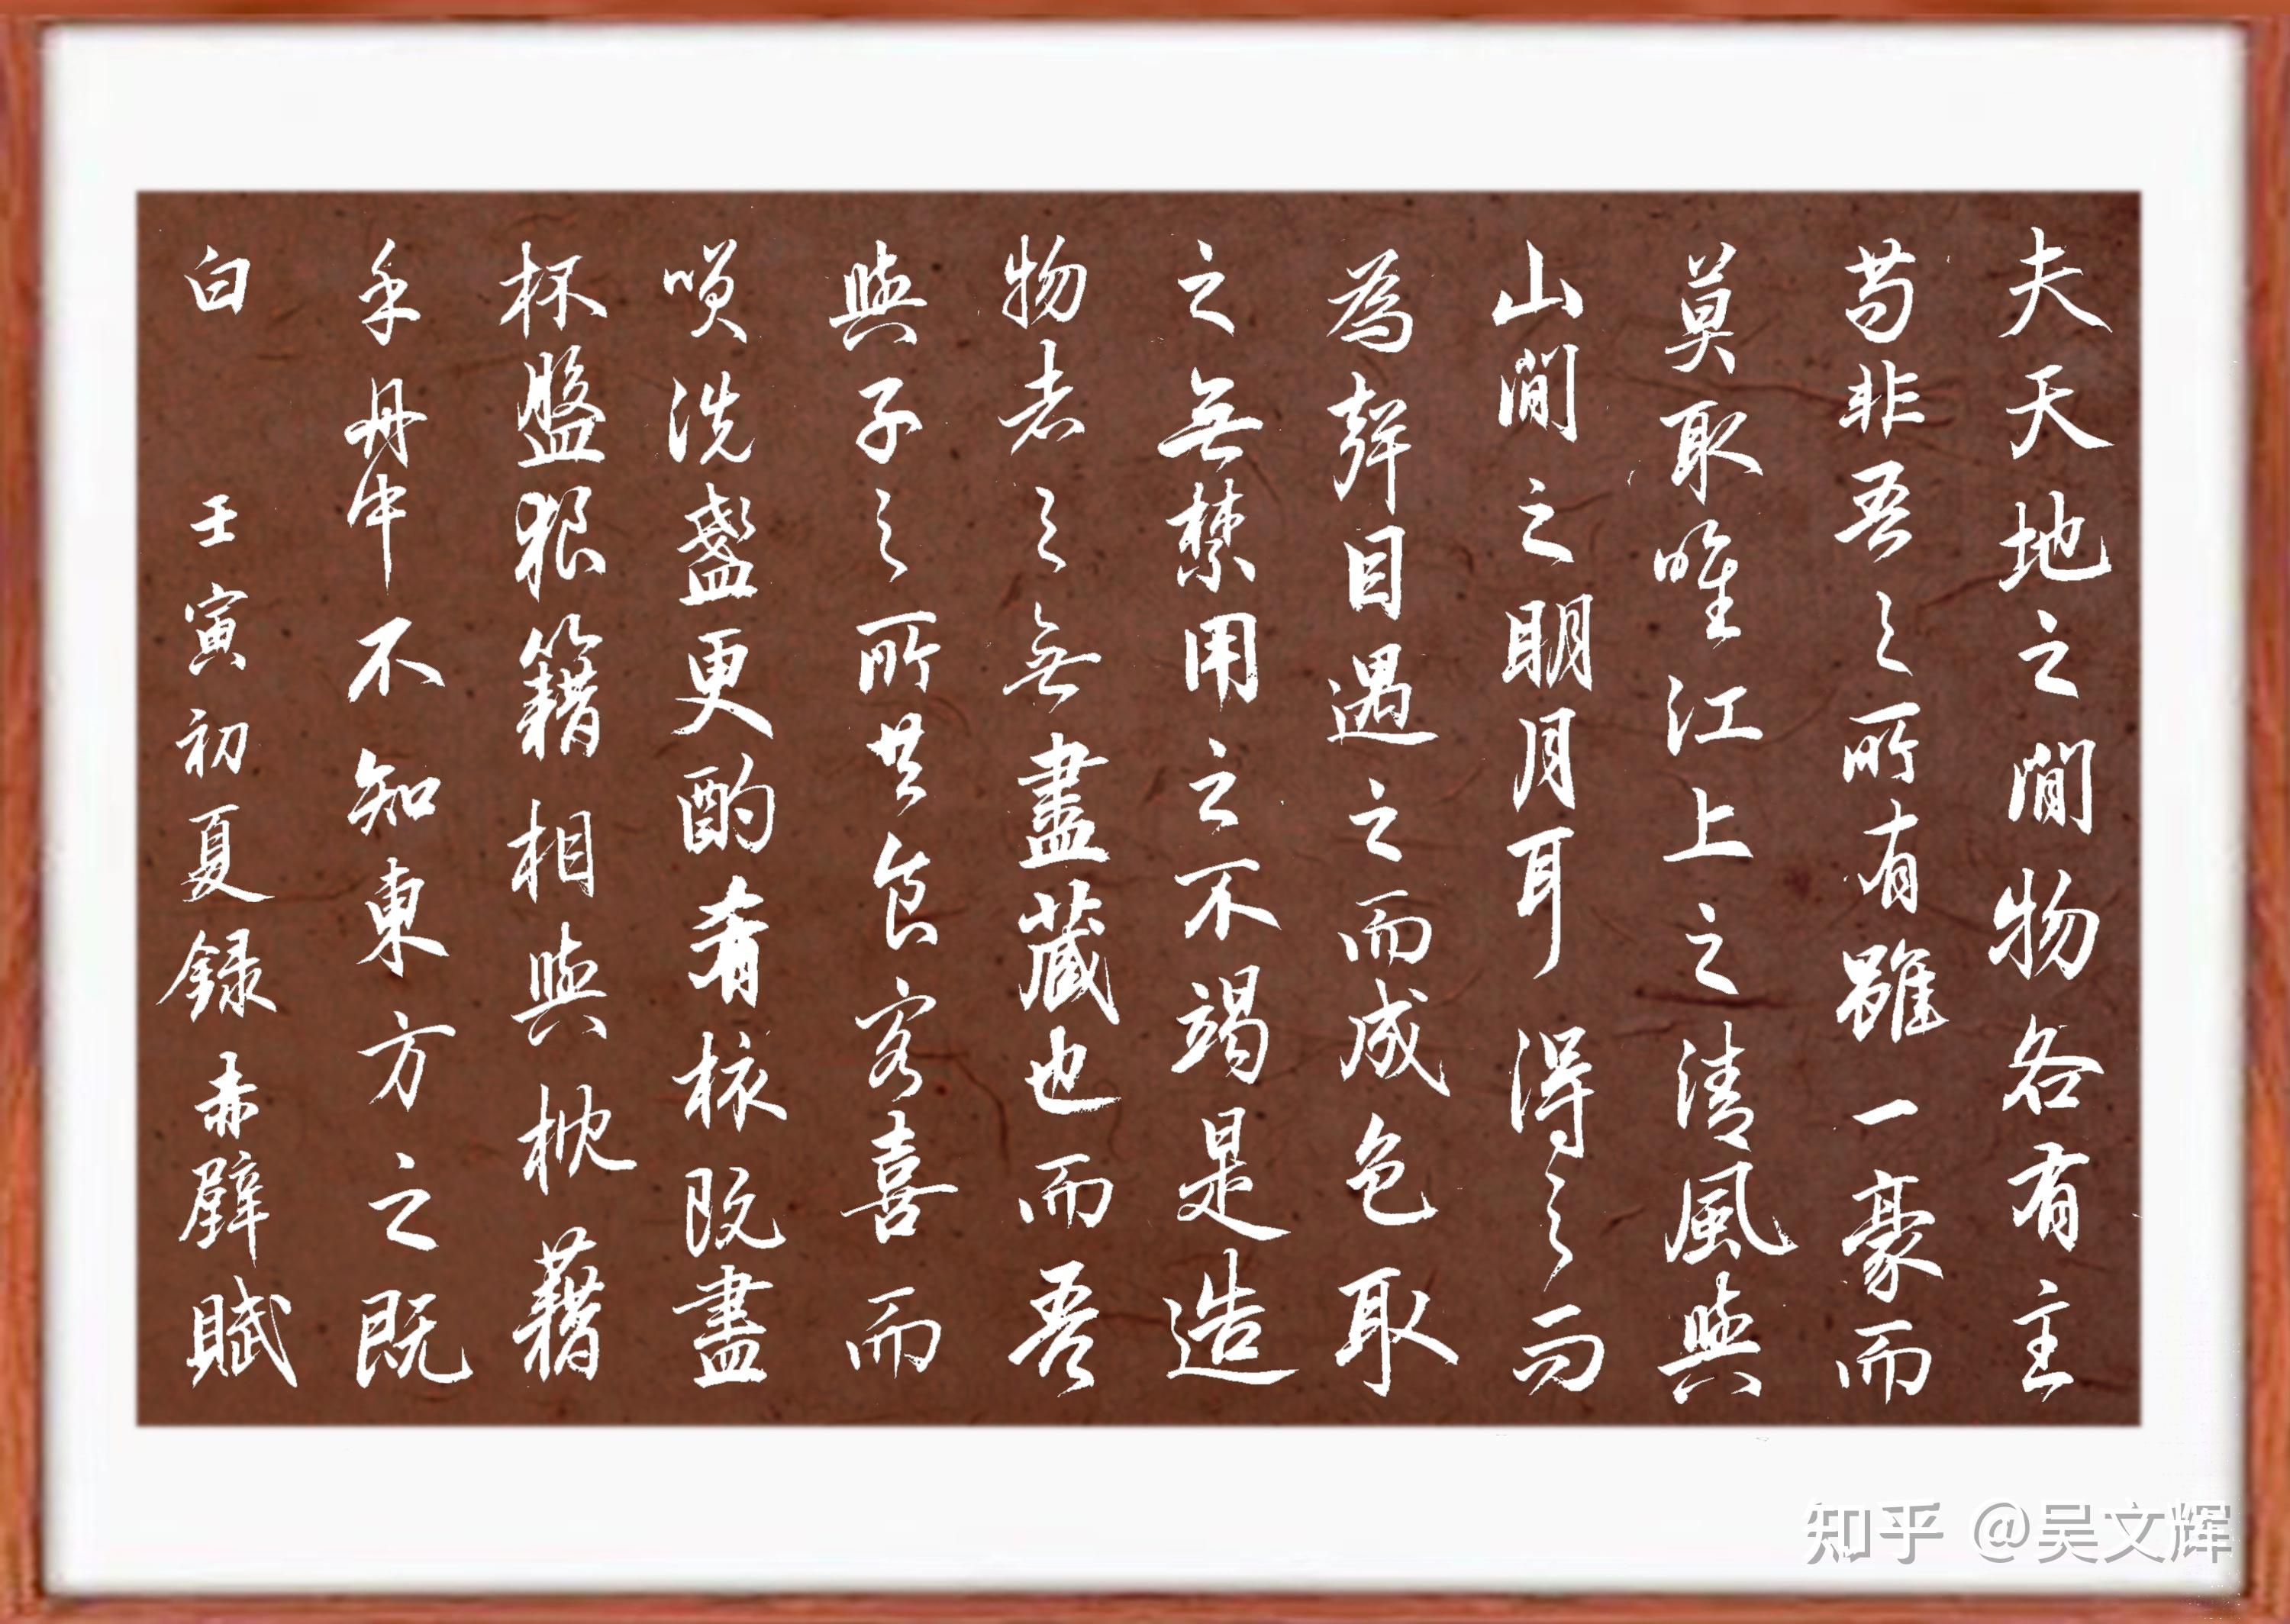 夫天地之間物各有主
苟非吾之所有雖一豪而
莫取唯江上之清風與
山間之明月耳得之而
為聲目遇之而成色取
之無禁用之不竭是造
物者之無盡藏也而吾
與子之所共食客喜而
笑洗盞更酌肴核既盡
杯盤狼籍相與枕藉
乎舟中不知東方之既
白
壬寅初夏錄赤壁賦
知乎 @吴文辉